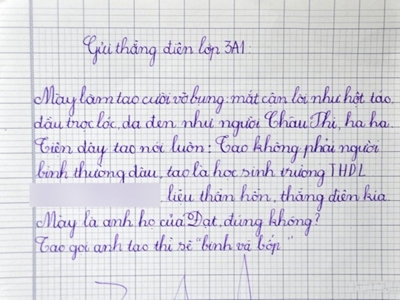 Gửi thằng điên lớp 3A1
Mày làm tao cười vỡ bụng: mắt cận lòi như hột tao,
đầu trọc lóc, da đen như người Châu Thi, ha ha
Tiện đây tao nói luôn: Tao không phải người
bình thường đâu, tao là học sinh trường THDL
liệu thần hồn, thằng điên kia
Mày là anh họ của Đạt, đúng không?
Tao gọi anh tao thì sẽ "bình vá bốp"